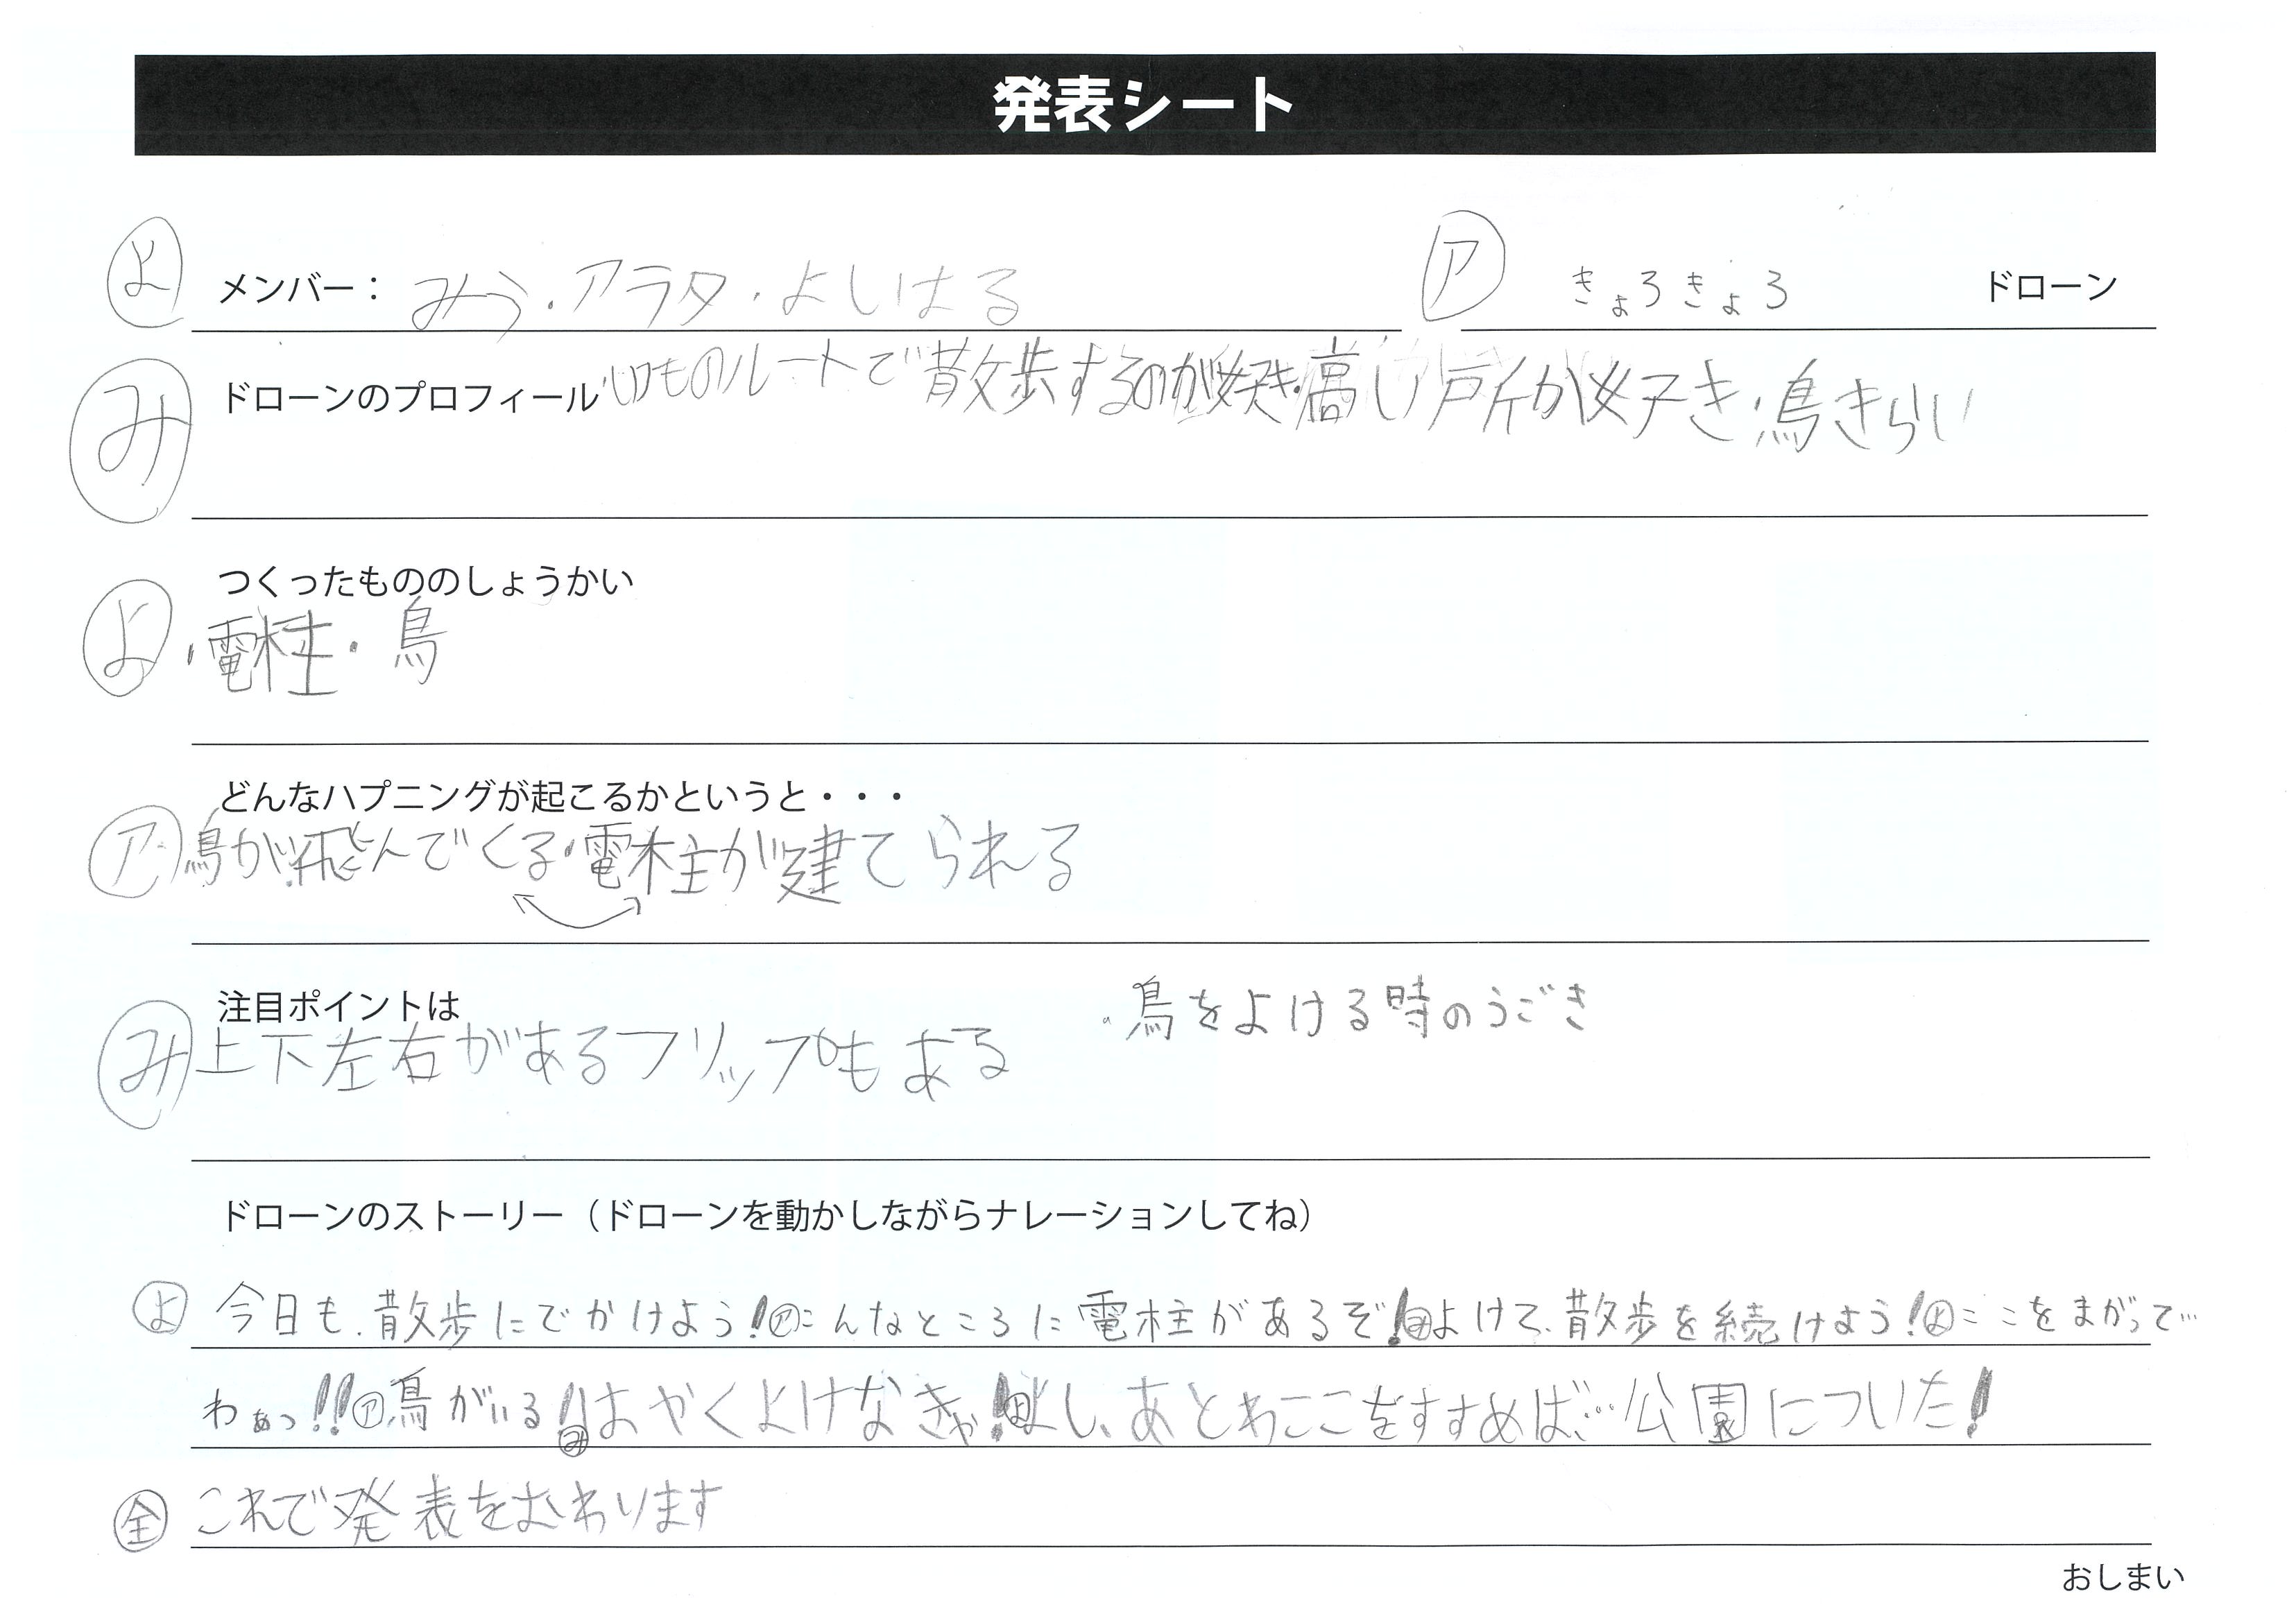 発表シート
㋵ メンバー： みう・アラタ・よしはる ㋐ きょろきょろ ドローン
み ドローンのプロフィール ・いつものルートで散歩するのが好き・高い所が好き・鳥きらい
つくったもののしょうかい
よ ・電柱・鳥
どんなハプニングが起こるかというと・・・
ア 鳥が飛んでくる・電柱が建てられる
注目ポイントは ・鳥をよける時のうごき
み 上下左右があるフリップもある
ドローンのストーリー（ドローンを動かしながらナレーションしてね）
よ 今日も、散歩にでかけよう！アこんなところに電柱があるぞ！みよけて、散歩を続けよう！よここをまがって…
わぁっ！！ア鳥がいる！みはやくよけなきゃ！よよし、あとわここをすすめば、…公園についた！
全 これで発表をおわります
おしまい